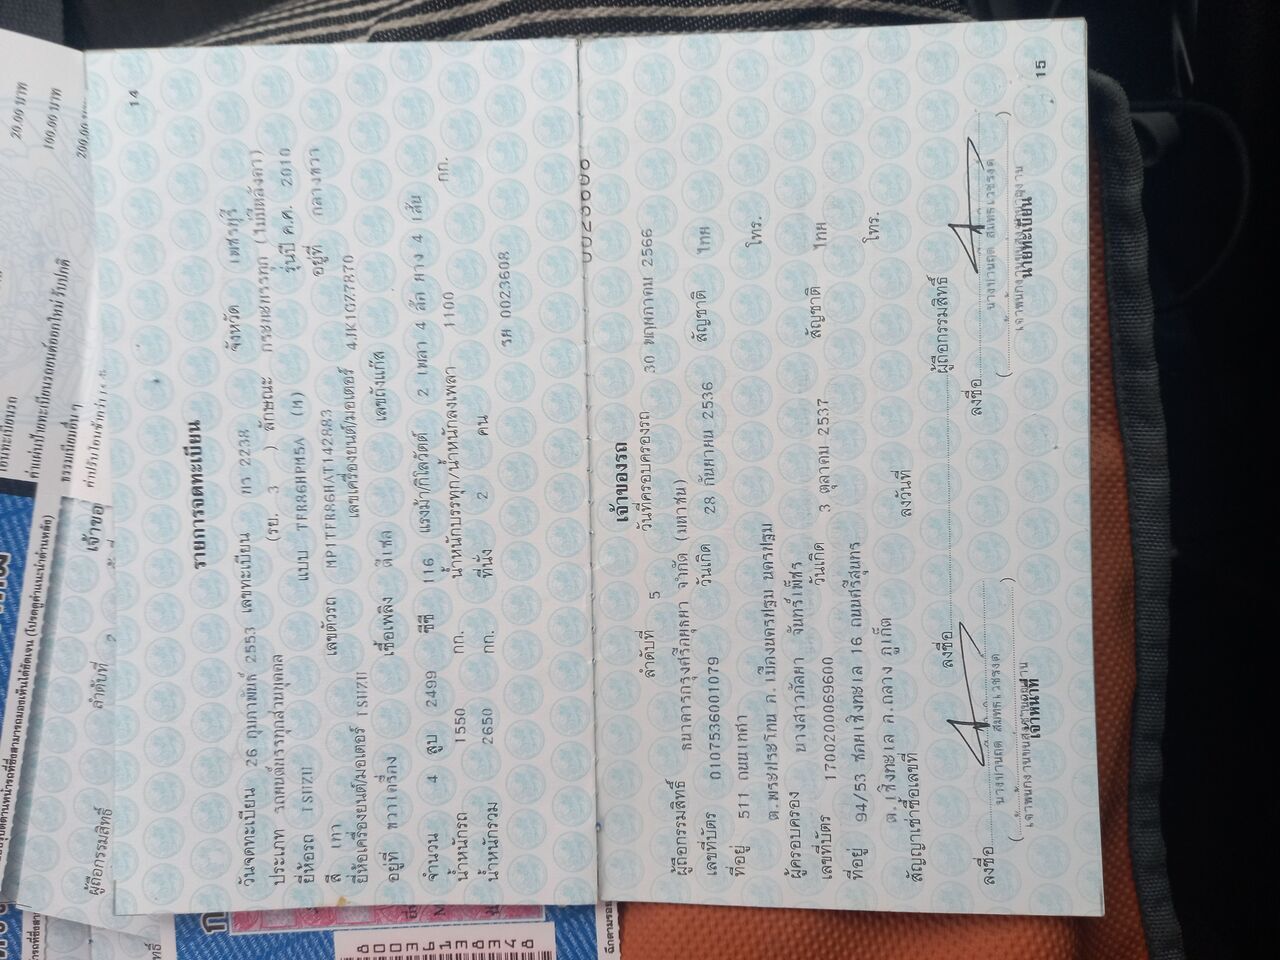 14
รายการจดทะเบียน
วันจดทะเบียน 26 กุมภาพันธ์ 2553 เลขทะเบียน บร 2238 จังหวัด เพชรบุรี
ประเภท รถยนต์บรรทุกส่วนบุคคล (รย. 3 ) ลักษณะ กระบะบรรทุก (ไม่มีหลังคา)
ยี่ห้อรถ ISUZU แบบ TFR86HPM5A (M) รุ่นปี ค.ศ. 2010
สี เทา เลขตัวรถ MP1TFR86HAT142883 อยู่ที่ กลางขวา
ยี่ห้อเครื่องยนต์/มอเตอร์ ISUZU เลขเครื่องยนต์/มอเตอร์ 4JK1GZ7870
อยู่ที่ ขวาเครื่อง เชื้อเพลิง ดีเซล เลขถังแก๊ส
จำนวน 4 สูบ 2499 ซีซี 116 แรงม้า/กิโลวัตต์ 2 เพลา 4 ล้อ ยาง 4 เส้น
น้ำหนักรถ 1550 กก. น้ำหนักบรรทุก/น้ำหนักลงเพลา 1100 กก.
น้ำหนักรวม 2650 กก. ที่นั่ง 2 คน
รย 0023608
0023608
เจ้าของรถ
ลำดับที่ 5 วันที่ครอบครองรถ 30 พฤษภาคม 2566
ผู้ถือกรรมสิทธิ์ ธนาคารกรุงศรีอยุธยา จำกัด (มหาชน)
เลขที่บัตร 0107536001079 วันเกิด 28 กันยายน 2536 สัญชาติ ไทย
ที่อยู่ 511 ถนนเทศา โทร.
ต.พระประโทน อ.เมืองนครปฐม นครปฐม
ผู้ครอบครอง นางสาวกัลยา จันทร์เพ็ชร
เลขที่บัตร 1700200069600 วันเกิด 3 ตุลาคม 2537 สัญชาติ ไทย
ที่อยู่ 94/53 ซอยเชิงทะเล 16 ถนนศรีสุนทร โทร.
ต.เชิงทะเล อ.ถลาง ภูเก็ต
สัญญาเช่าซื้อเลขที่ ลงวันที่
ลงชื่อ ผู้ถือกรรมสิทธิ์
ลงชื่อ ลงชื่อ
เจ้าพนักงานขนส่งชำนาญงาน เจ้าพนักงานขนส่งชำนาญงาน
เจ้าหน้าที่ นายทะเบียน
15
20.00 บาท
100.00 บาท
200.00
ลำดับที่
ผู้ถือกรรมสิทธิ์